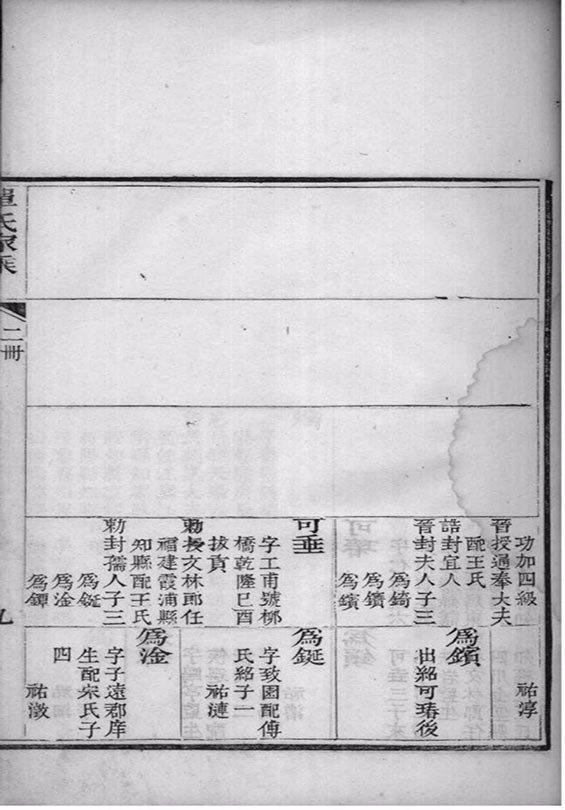 功加四級
晉授通奉大夫
配王氏
誥封宜人
晉封夫人子三
爲錡
爲
爲鑌
可垂
字工甫號柳
橋乾隆己酉
拔貢
勅授文林郎任
福建霞浦縣
知縣配王氏
勅封孺人子三
爲鋋
爲淦
爲鐔
祐淳
爲鑌
出紹可瑃後
爲鋋
字致園配傅
氏紹子一
祐漣
爲淦
字子遠郡庠
生配宋氏子
四
祐澂
單氏家乘
二冊
九